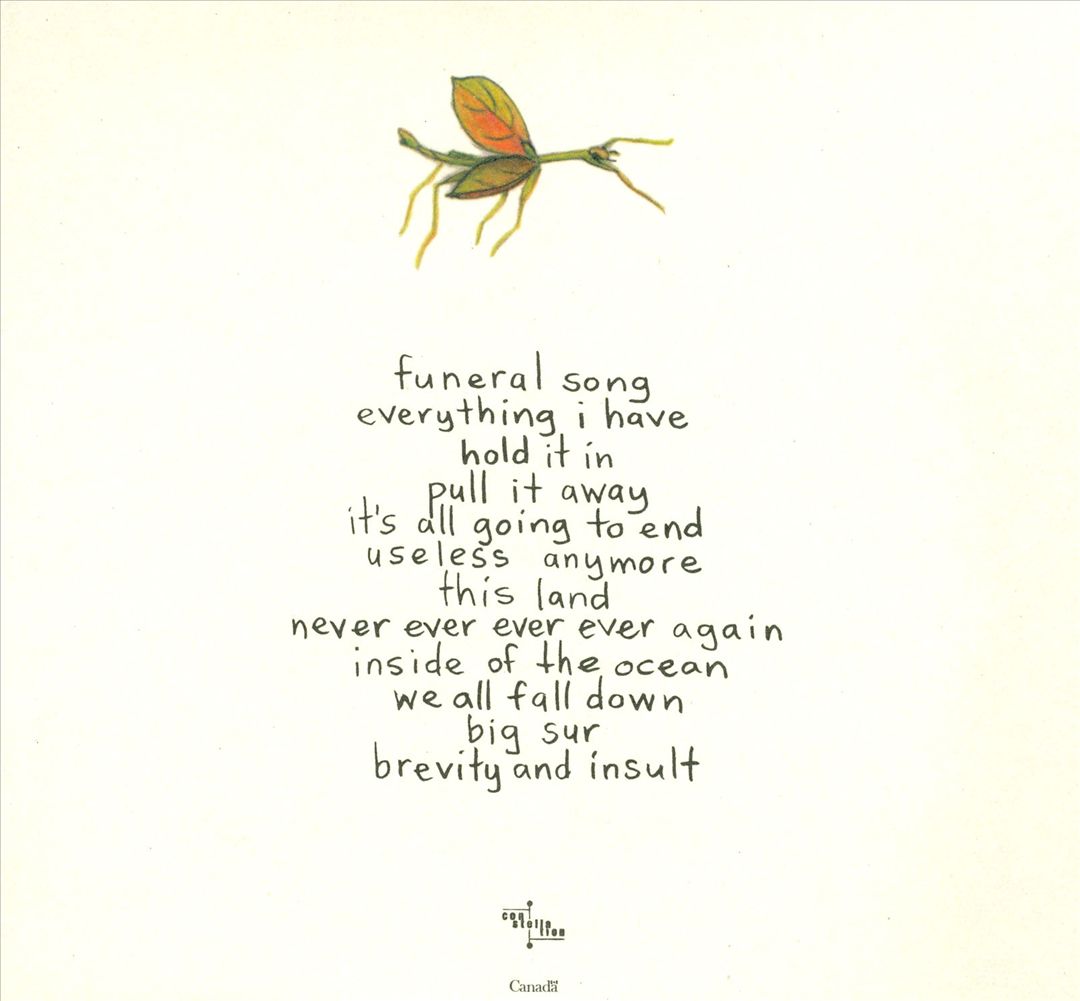 funeral song
everything i have
hold it in
pull it away
it's all going to end
useless anymore
this land
never ever ever ever again
inside of the ocean
we all fall down
big sur
brevity and insult
con
stella
tion
Canada